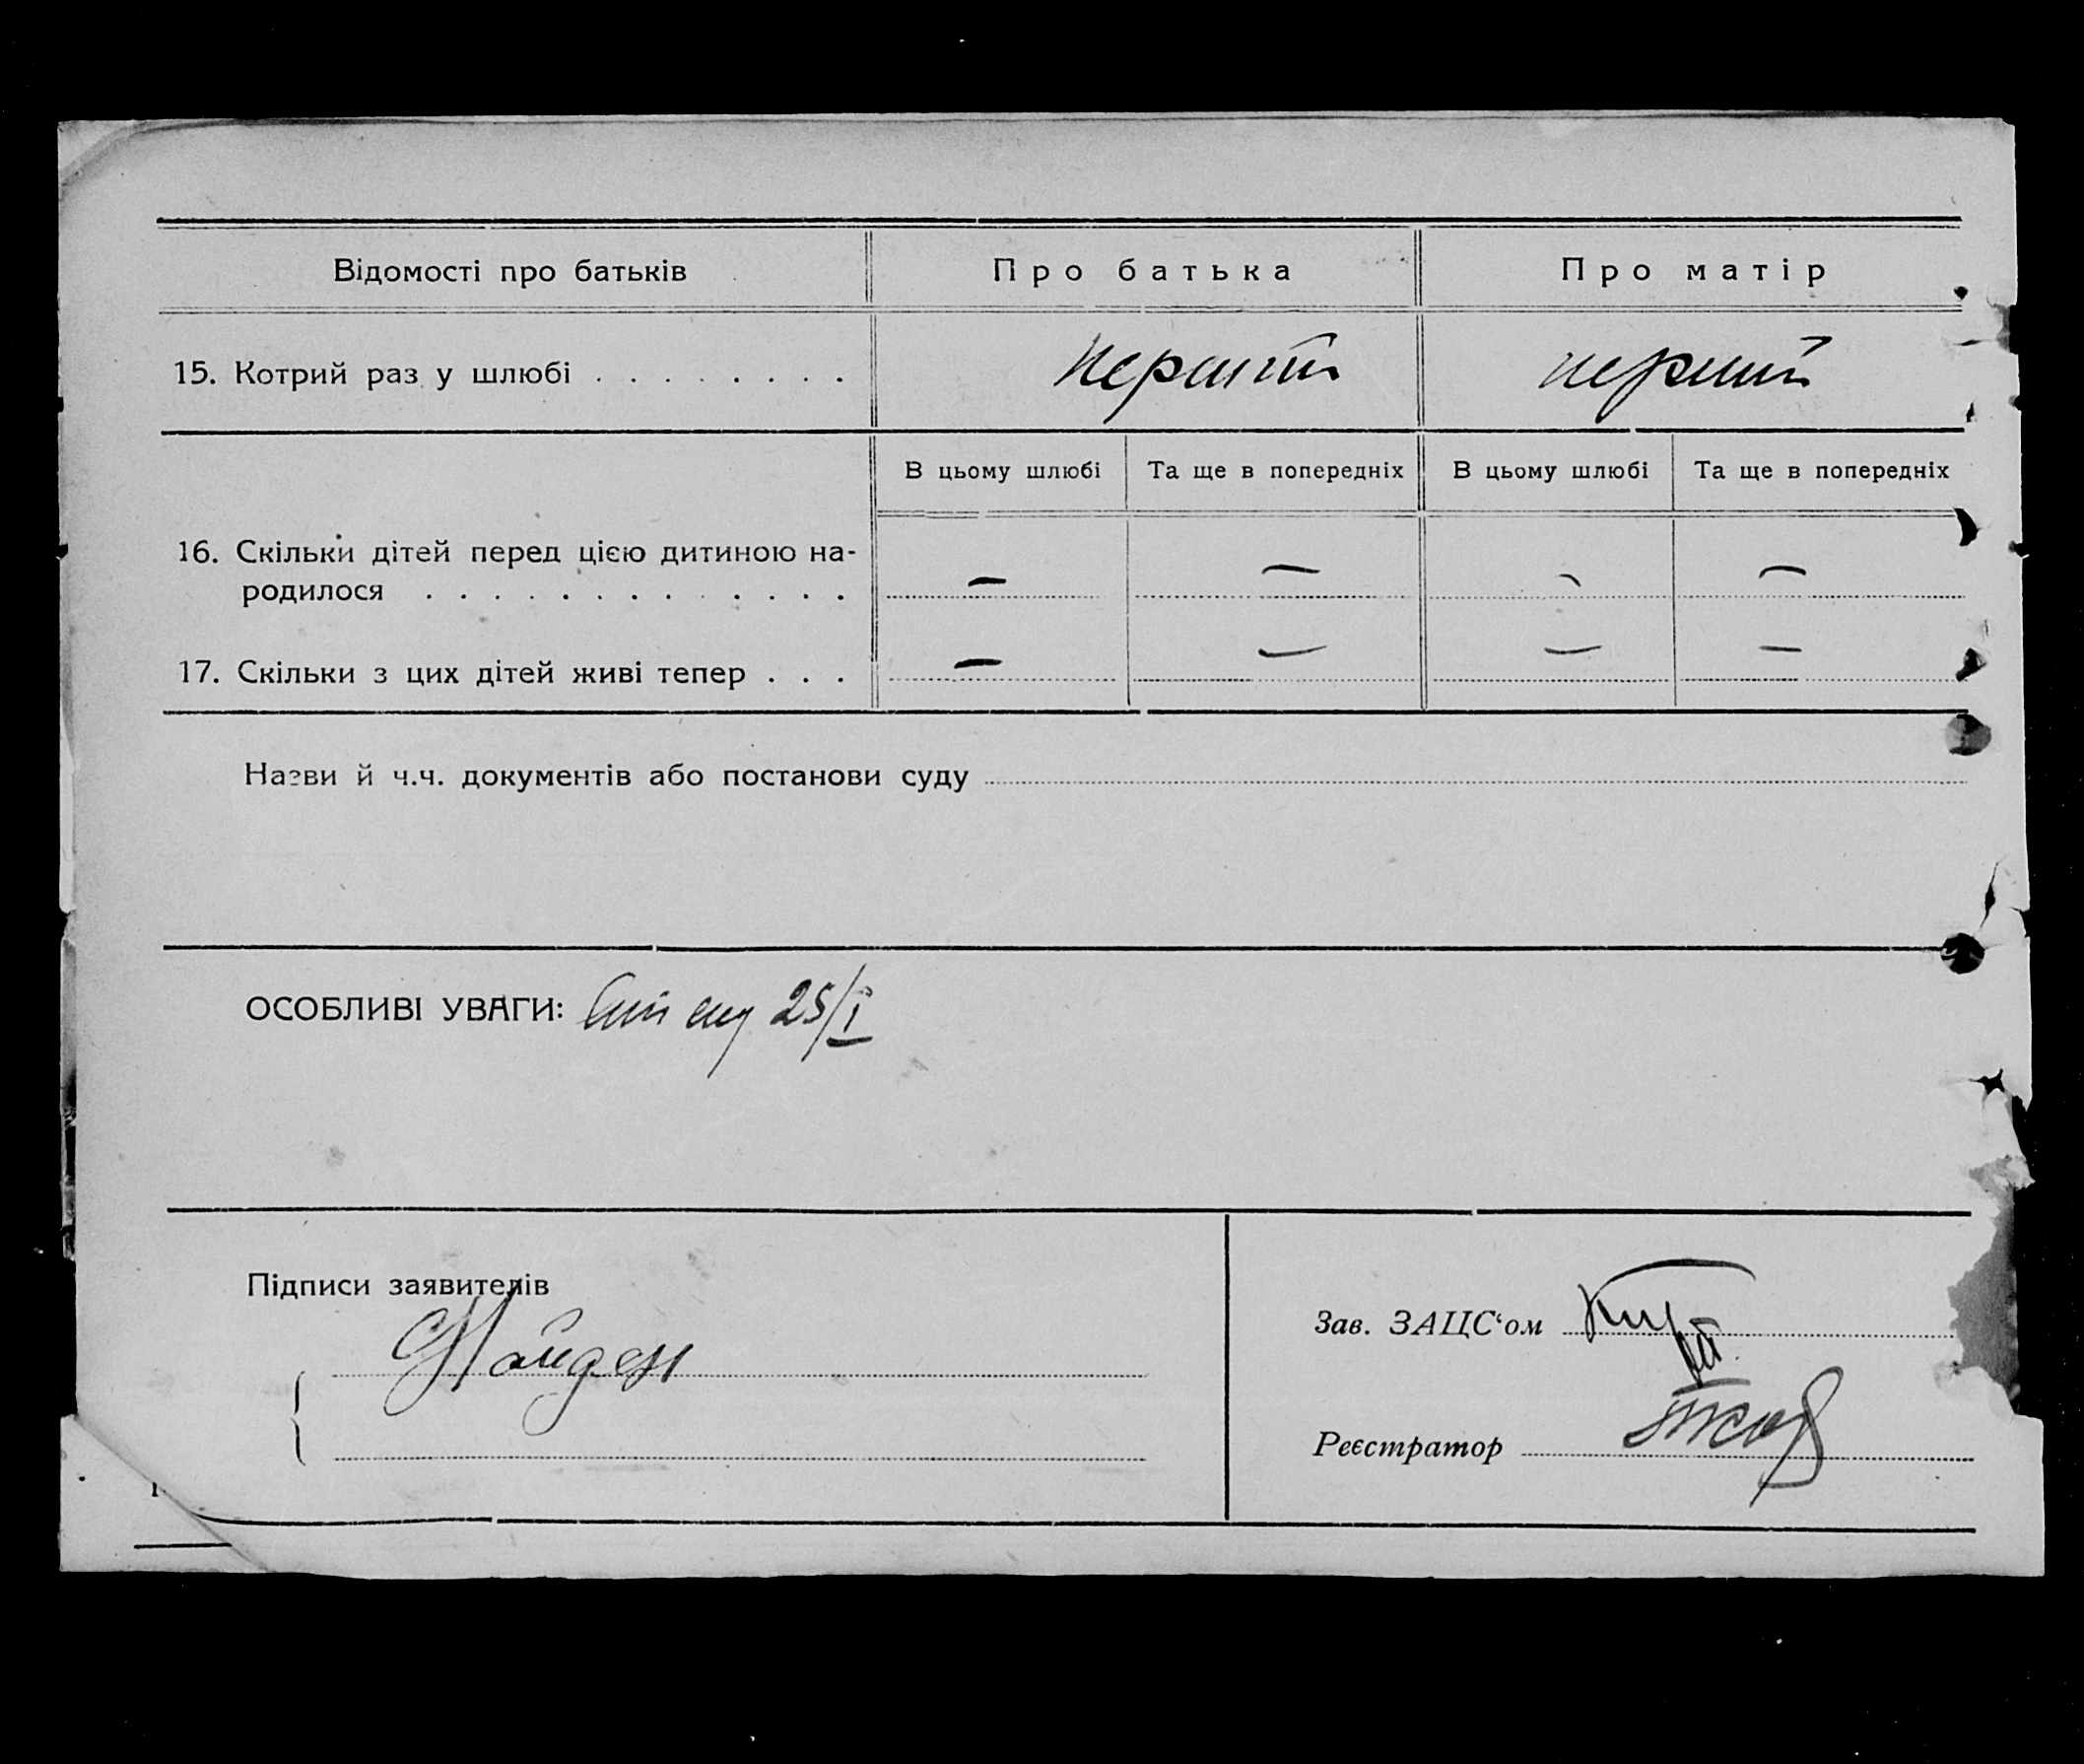 Відомості про батьків Про батька Про матір
15. Котрий раз у шлюбі . . . . . . . . перший перший
В цьому шлюбі Та ще в попередніх В цьому шлюбі Та ще в попередніх
16. Скільки дітей перед цією дитиною на-
родилося . . . . . . . . . . . . . — — — —
17. Скільки з цих дітей живі тепер . . . — — — —
Назви й ч.ч. документів або постанови суду
ОСОБЛИВІ УВАГИ: 25/I
Підписи заявителів
Зав. ЗАЦС‘ом
Реєстратор